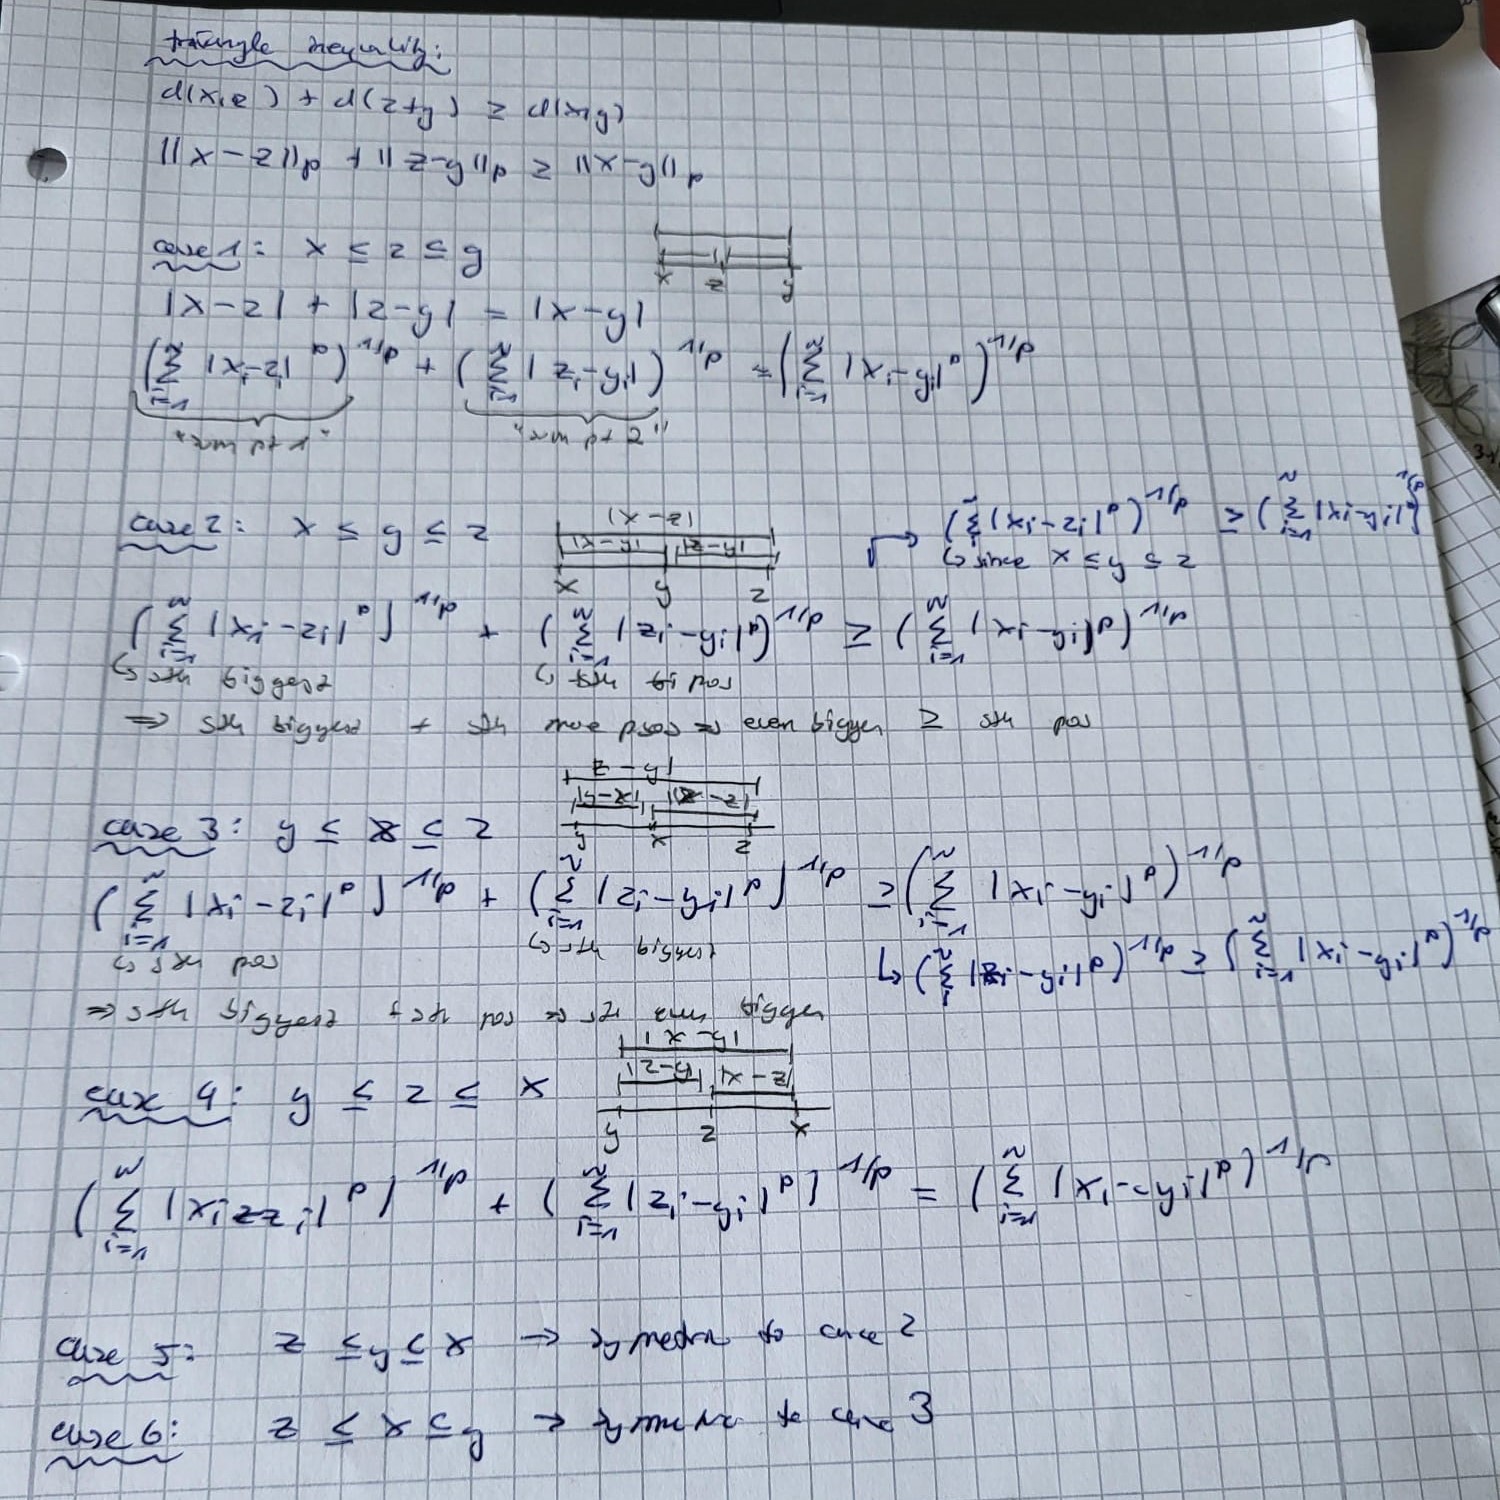 triangle inequality:
d(x,z) + d(z+y) ≥ d(x,y)
||x-z||p + ||z-y||p ≥ ||x-y||p
case 1: x ≤ z ≤ y
x z y
|x-z| + |z-y| = |x-y|
(∑_{i=1}^n |x_i-z_i|^p)^{1/p} + (∑_{i=1}^n |z_i-y_i|)^{1/p} = (∑_{i=1}^n |x_i-y_i|^p)^{1/p}
case 2: x ≤ y ≤ z
|z-x|
|y-x| |y-z|
x y z
(∑_i^n |x_i-z_i|^p)^{1/p} ≥ (∑_{i=1}^n |x_i-y_i|^p)^{1/p}
↳ since x ≤ y ≤ z
(∑_{i=1}^n |x_i-z_i|^p)^{1/p} + (∑_{i=1}^n |z_i-y_i|^p)^{1/p} ≥ (∑_{i=1}^n |x_i-y_i|^p)^{1/p}
↳ sth biggest ↳ sth pos
⇒ sth biggest + sth more pos ⇒ even bigger ≥ sth pos
z-y|
|y-x| |x-z|
y x z
case 3: y ≤ x ≤ z
(∑_{i=1}^n |x_i-z_i|^p)^{1/p} + (∑_{i=1}^n |z_i-y_i|^p)^{1/p} ≥ (∑_{i=1}^n |x_i-y_i|^p)^{1/p}
↳ sth pos ↳ sth biggest
↳ (∑_i^n |z_i-y_i|^p)^{1/p} ≥ (∑_{i=1}^n |x_i-y_i|^p)^{1/p}
⇒ sth biggest + sth pos ⇒ sth even bigger
|y-x|
|y-z| |z-x|
y z x
case 4: y ≤ z ≤ x
(∑_{i=1}^n |x_i-z_i|^p)^{1/p} + (∑_{i=1}^n |z_i-y_i|^p)^{1/p} = (∑_{i=1}^n |x_i-y_i|^p)^{1/p}
case 5: z ≤ y ≤ x → to case 2
case 6: z ≤ x ≤ y → to case 3